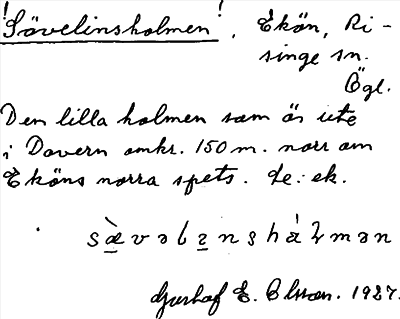 !Sävelinsholmen!, Ekön, Ri-
singe sn.
Ögl.
Den lilla holmen som är ute
i Dovern omkr. 150 m. norr om
Eköns norra spets. de: ek.
Gustaf E. Olsson. 1927.